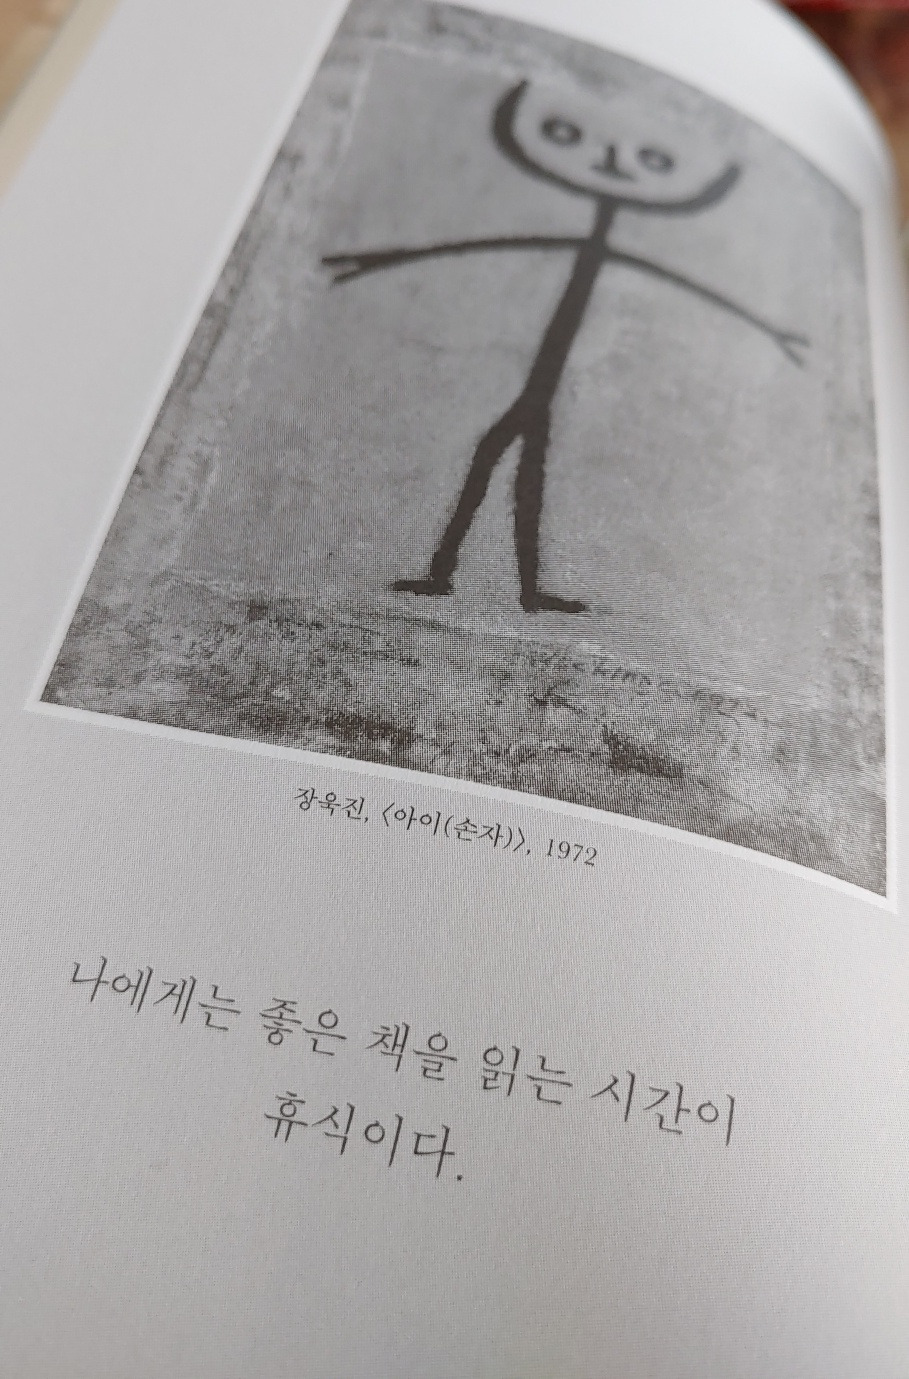 장욱진, 〈아이(손자)〉, 1972
나에게는 좋은 책을 읽는 시간이
휴식이다.